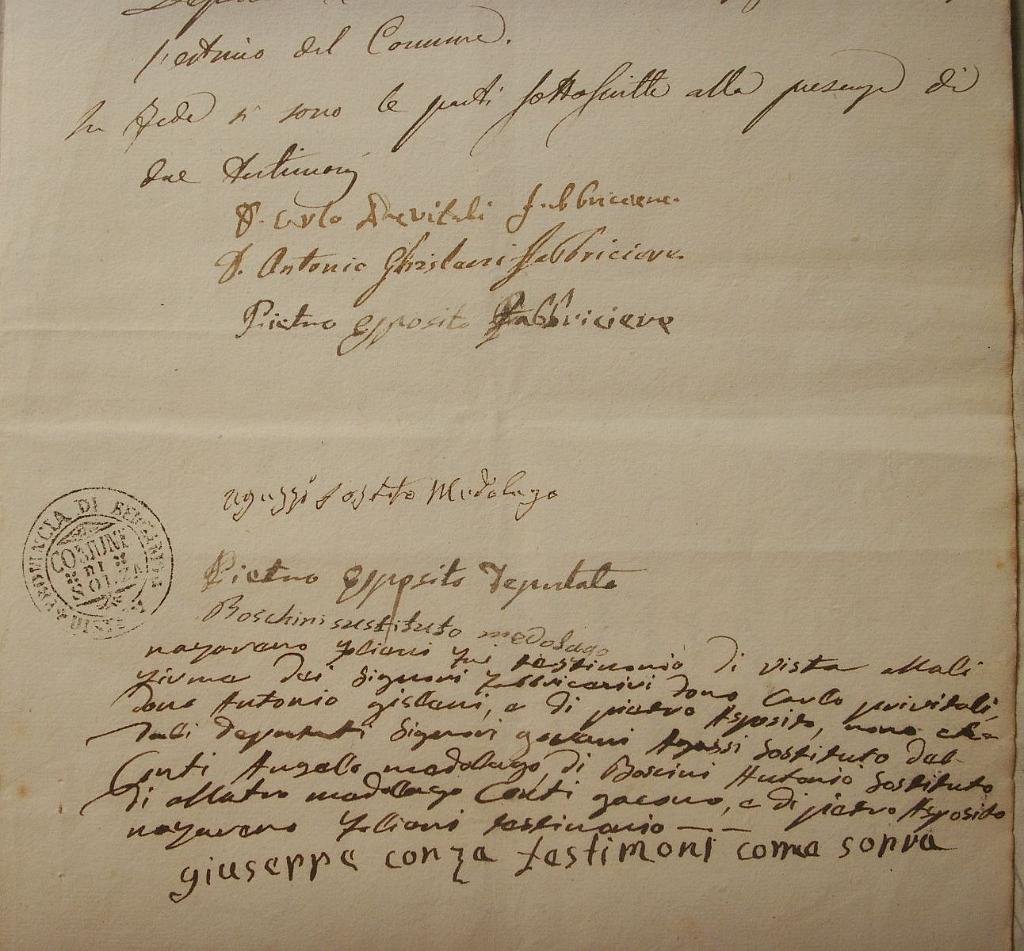 l'estimo del Comune.
In Fede si sono le parti sottoscritte alla presenza di
due Testimonj
D. Carlo Previtali Fabbriciere.
D. Antonio Ghislani Fabbriciere.
Pietro Esposito Fabbriciere
Agazzi Sostito Medolago
PROVINCIA DI BERGAMO
COMUNE
DI
SOLZA
Pietro Esposito Deputato
Boschini sustituto medolago
nazareno foliani fui testimonio di vista alali
firma dei Signori fabbricarivi dono Carlo privitali,
dono Antonio gislani, e di pietro Asposito, nono che
dali deputati Signori govani Agassi Sostituto del
Conti Angelo medolago, di Boscini Antonio Sostituto
di allatro medolago Conti gacomo, e di pietro Asposito
nazareno foliani testimonio — —
giuseppe conza testimoni come sopra